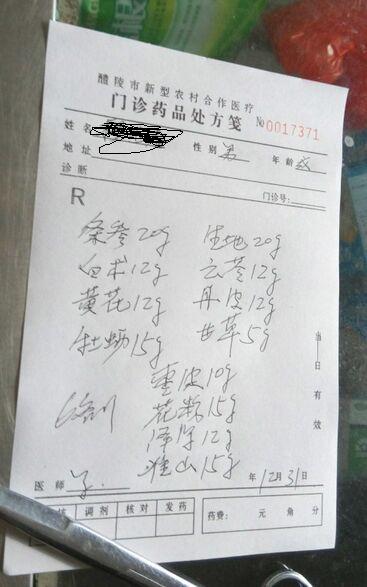 醴陵市新型农村合作医疗
门诊药品处方笺 №0017371
姓名 性别 男 年龄
地址
诊断 门诊号:
R
条参20g 生地20g
白术12g 云苓12g
黄花12g 丹皮12g
牡蛎15g 甘草5g
重皮10g
花粉15g
泽泻12g
淮山15g
当日有效
医师 年12月31日
调剂 核对 发药 药费: 元 角 分